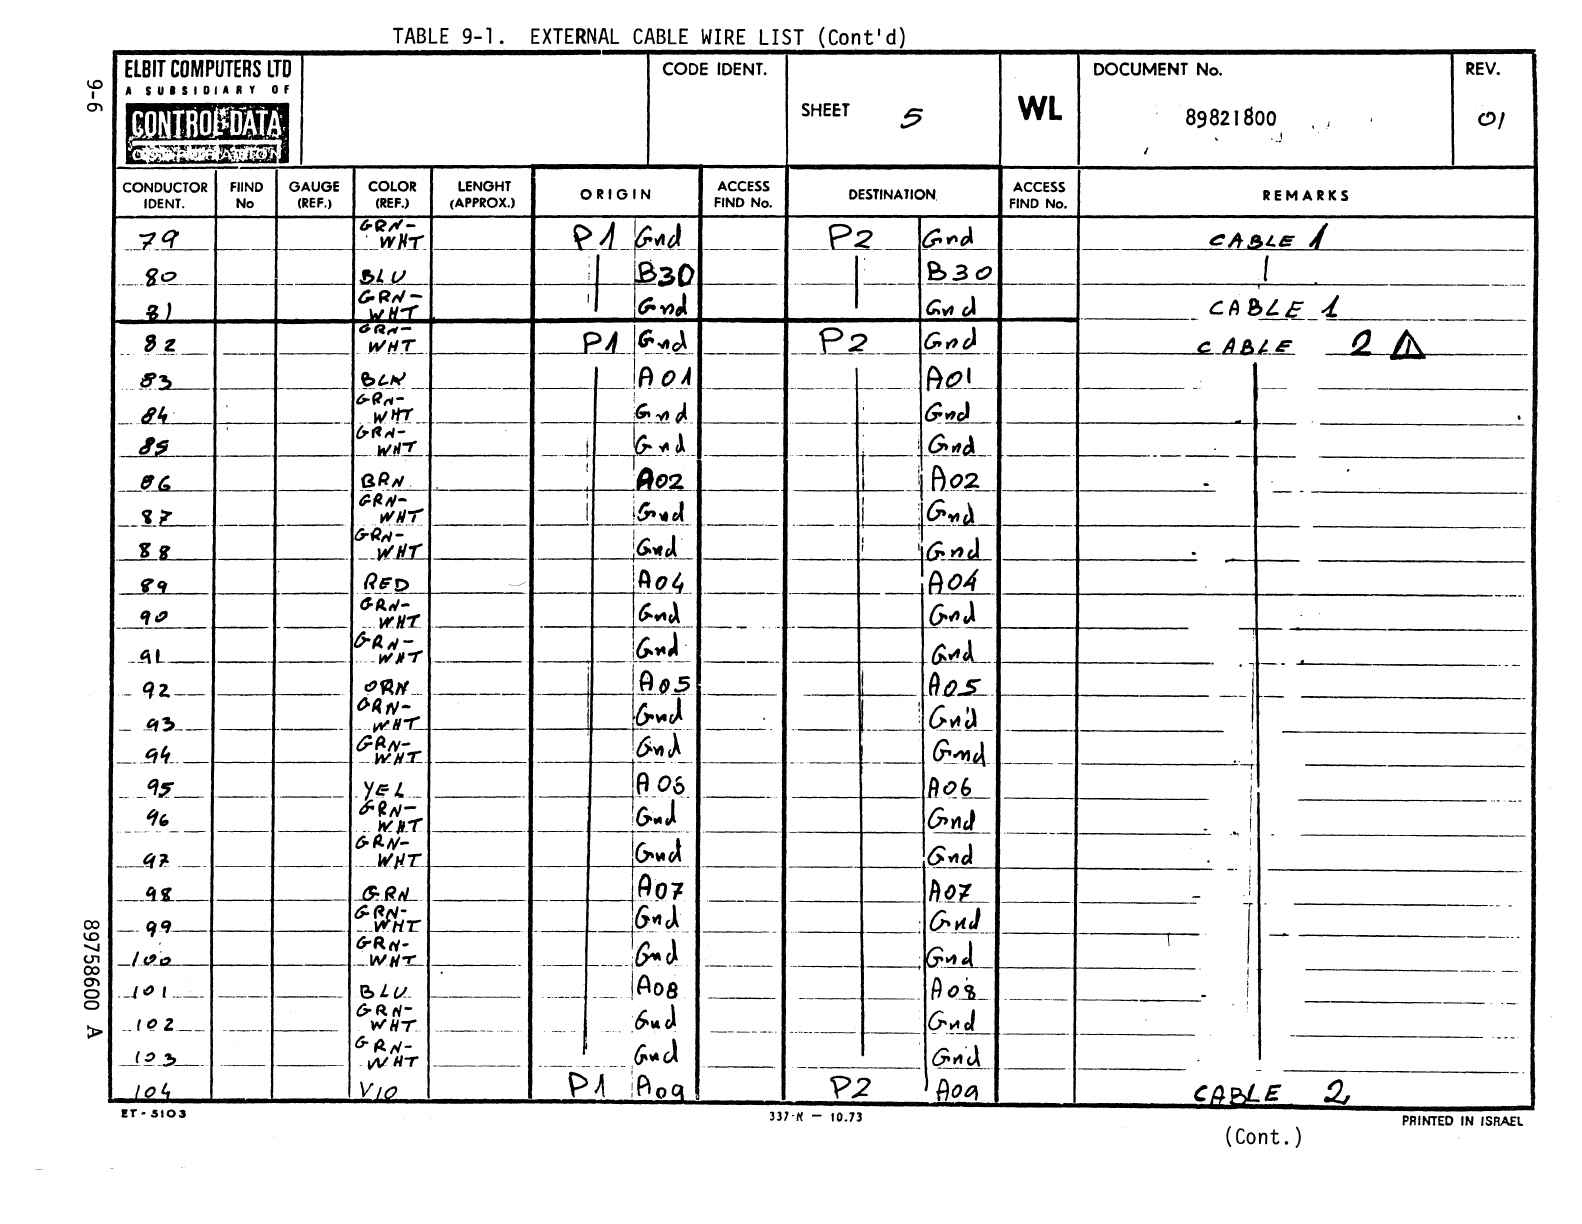 TABLE 9-1. EXTERNAL CABLE WIRE LIST (Cont'd)
9-6
ELBIT COMPUTERS LTD
A SUBSIDIARY OF
CONTROL DATA
CORPORATION
CODE IDENT.
SHEET 5
WL
DOCUMENT No.
89821800
REV.
01
CONDUCTOR IDENT. FIIND No GAUGE (REF.) COLOR (REF.) LENGHT (APPROX.) ORIGIN ACCESS FIND No. DESTINATION ACCESS FIND No. REMARKS
79 GRN-WHT P1 Gnd P2 Gnd CABLE 1
80 BLU B30 B30
81 GRN-WHT Gnd Gnd CABLE 1
82 GRN-WHT P1 Gnd P2 Gnd CABLE 2 1
83 BLK A01 A01
84 GRN-WHT Gnd Gnd
85 GRN-WHT Gnd Gnd
86 BRN A02 A02
87 GRN-WHT Gnd Gnd
88 GRN-WHT Gnd Gnd
89 RED A04 A04
90 GRN-WHT Gnd Gnd
91 GRN-WHT Gnd Gnd
92 ORN A05 A05
93 GRN-WHT Gnd Gnd
94 GRN-WHT Gnd Gnd
95 YEL A06 A06
96 GRN-WHT Gnd Gnd
97 GRN-WHT Gnd Gnd
98 GRN A07 A07
99 GRN-WHT Gnd Gnd
100 GRN-WHT Gnd Gnd
101 BLU A08 A08
102 GRN-WHT Gnd Gnd
103 GRN-WHT Gnd Gnd
104 VIO P1 A09 P2 A09 CABLE 2
ET-5103
337-R — 10.73
PRINTED IN ISRAEL
(Cont.)
89758600 A